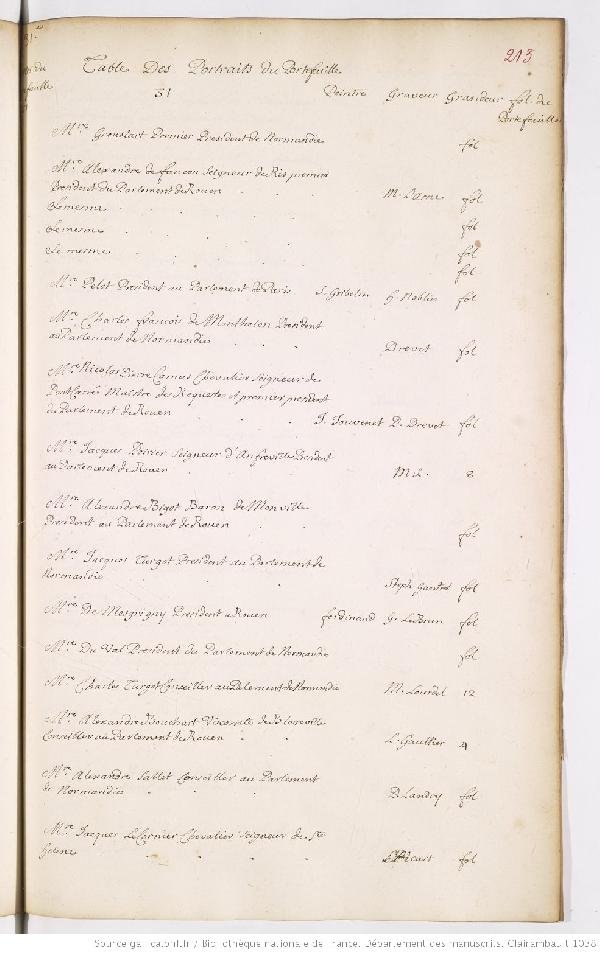 213
Table Des Portraits du Portefeuille
31
Peintre Graveur Grandeur fol. du
Portefeuille
Mre Groulart Premier President de Normandie fol
Mre Alexandre de faucon Seigneur de Ris premier
President du Parlement de Rouen M. Lasne fol
Le mesme fol
Le mesme fol
fol
Mre Pelot President au Parlement de Paris J. Gribelin G. Noblin fol
Mre Charles francois de Montholon President
au Parlement de Normandie Drevet fol
Mre Nicolas Pierre Camus Chevalier Seigneur de
Pontcarré Maistre des Requestes et premier president
du Parlement de Rouen J. Jouvenet P. Drevet fol
Mre Jacques Poirier Seigneur d'Anfreville President
au Parlement de Rouen M. L. 8
Mre Alexandre Bigot Baron de Monville
President au Parlement de Rouen fol
Mre Jacques Turgot President au Parlement de
Normandie Steph. fol
Mre De Mesgrigny President a Rouen ferdinand G. Le Brun fol
Mre Du Val President du Parlement de Normandie fol
Mre Charles Turgot Conseiller au Parlement de Normandie M. Lourdel 12
Mre Alexandre Bouchart Vicomte de Blosseville
Conseiller au Parlement de Rouen L. Gaultier 4
Mre Alexandre Sallet Conseiller au Parlement
de Normandie P. Landry fol
Mre Jacques Le Cornier Chevalier Seigneur de Ste
helene fol
Source gallica.bnf.fr / Bibliothèque nationale de France. Département des manuscrits. Clairambault 1038